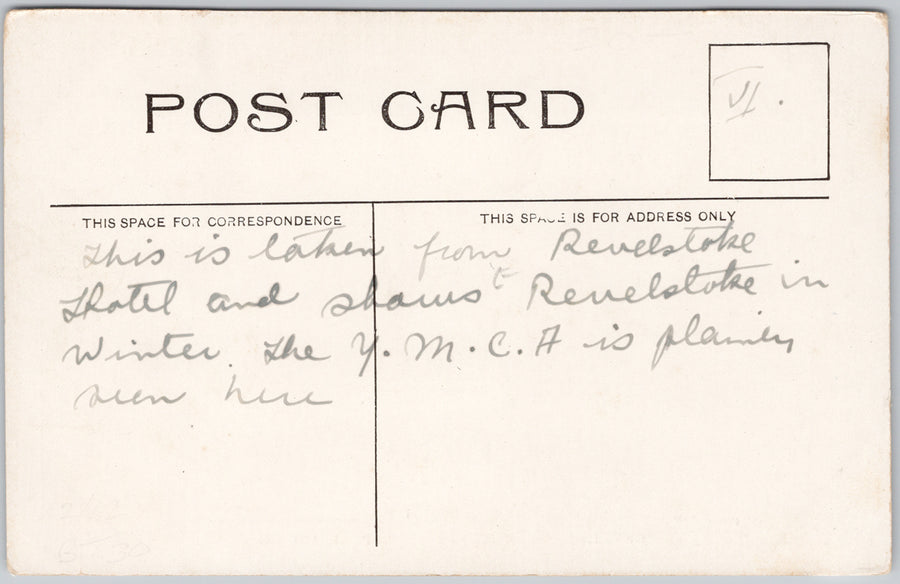 POST CARD
THIS SPACE FOR CORRESPONDENCE
THIS SPACE IS FOR ADDRESS ONLY
This is taken from Revelstoke
Hotel and shows Revelstoke in
Winter. The Y.M.C.A is plainly
seen here